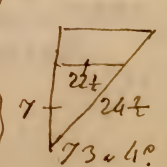 22t
7 24t
73,4°